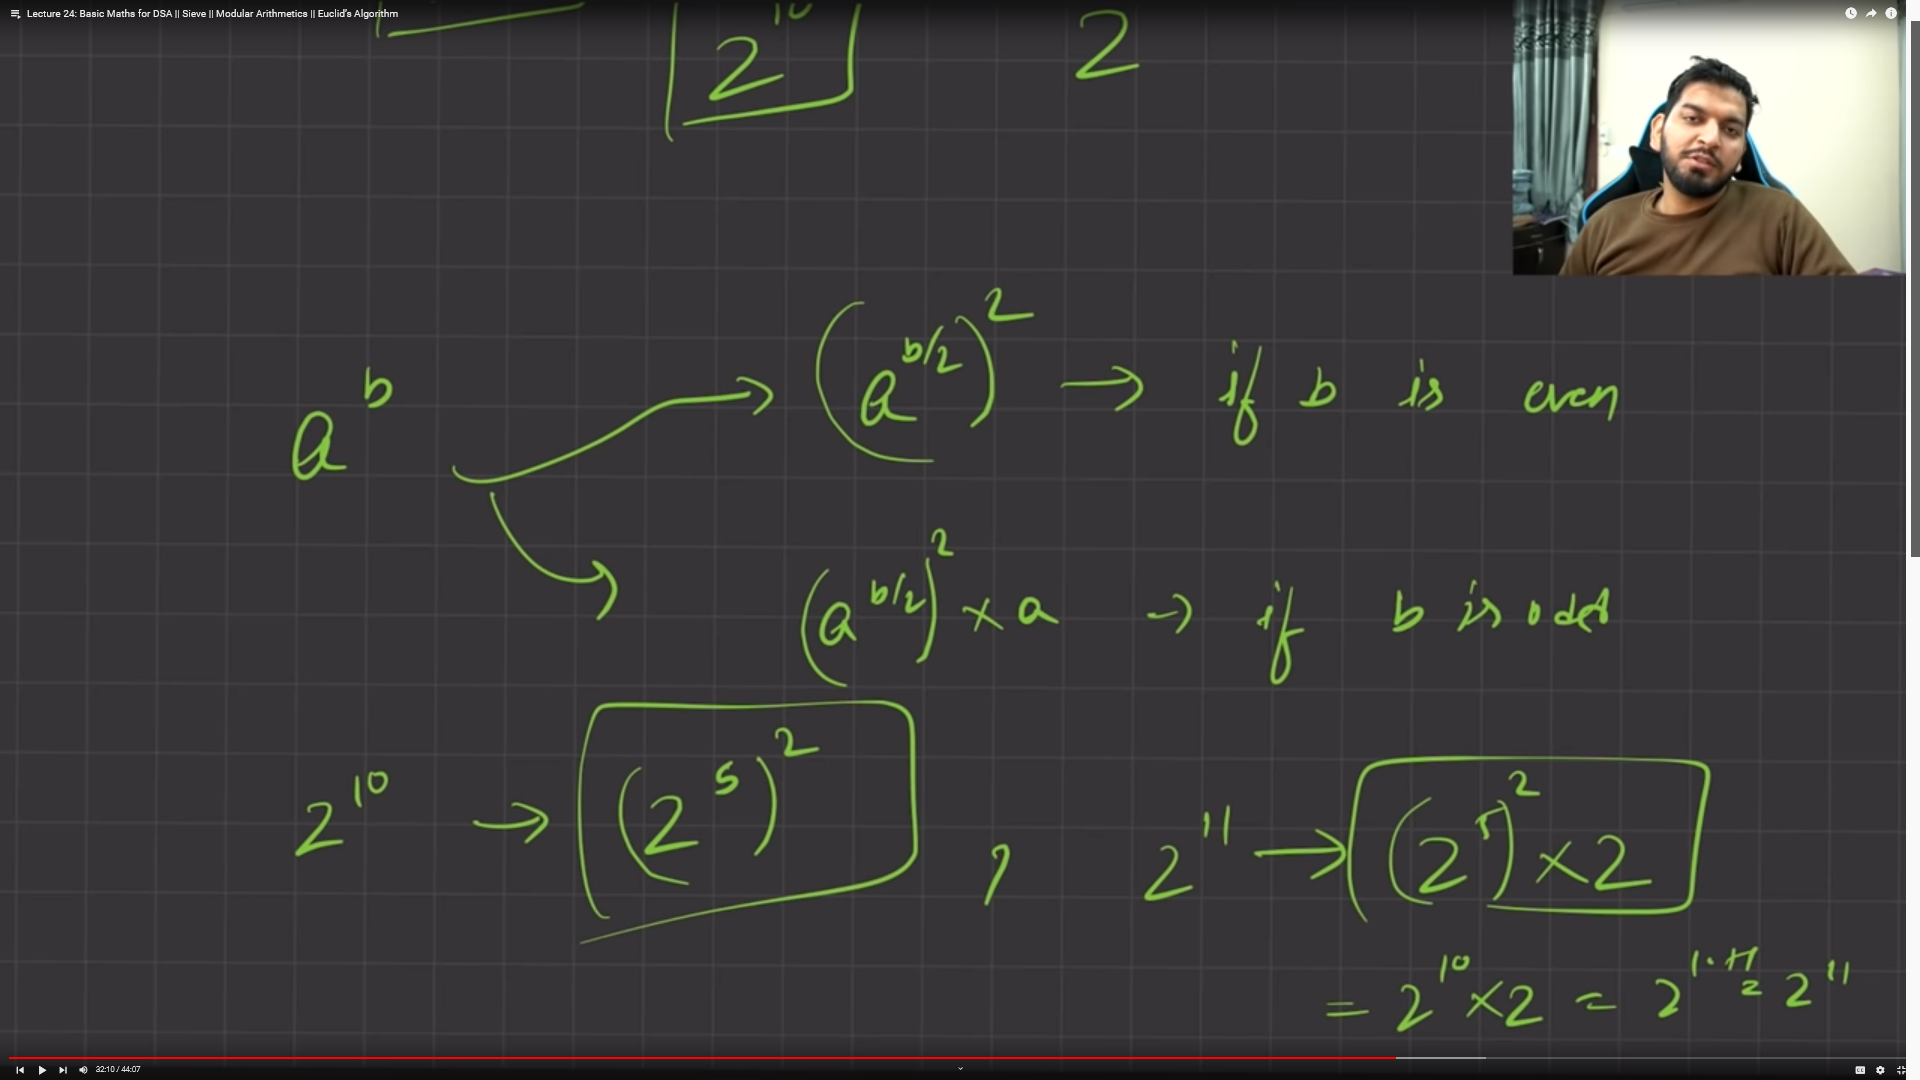 Lecture 24: Basic Maths for DSA || Sieve || Modular Arithmetics || Euclid's Algorithm
2^10 2
a^b → (a^b/2)^2 → if b is even
(a^b/2)^2 × a → if b is odd
2^10 → (2^5)^2 , 2^11 → (2^5)^2 × 2
= 2^10 × 2 = 2^10+1 = 2^11
32:10 / 44:07